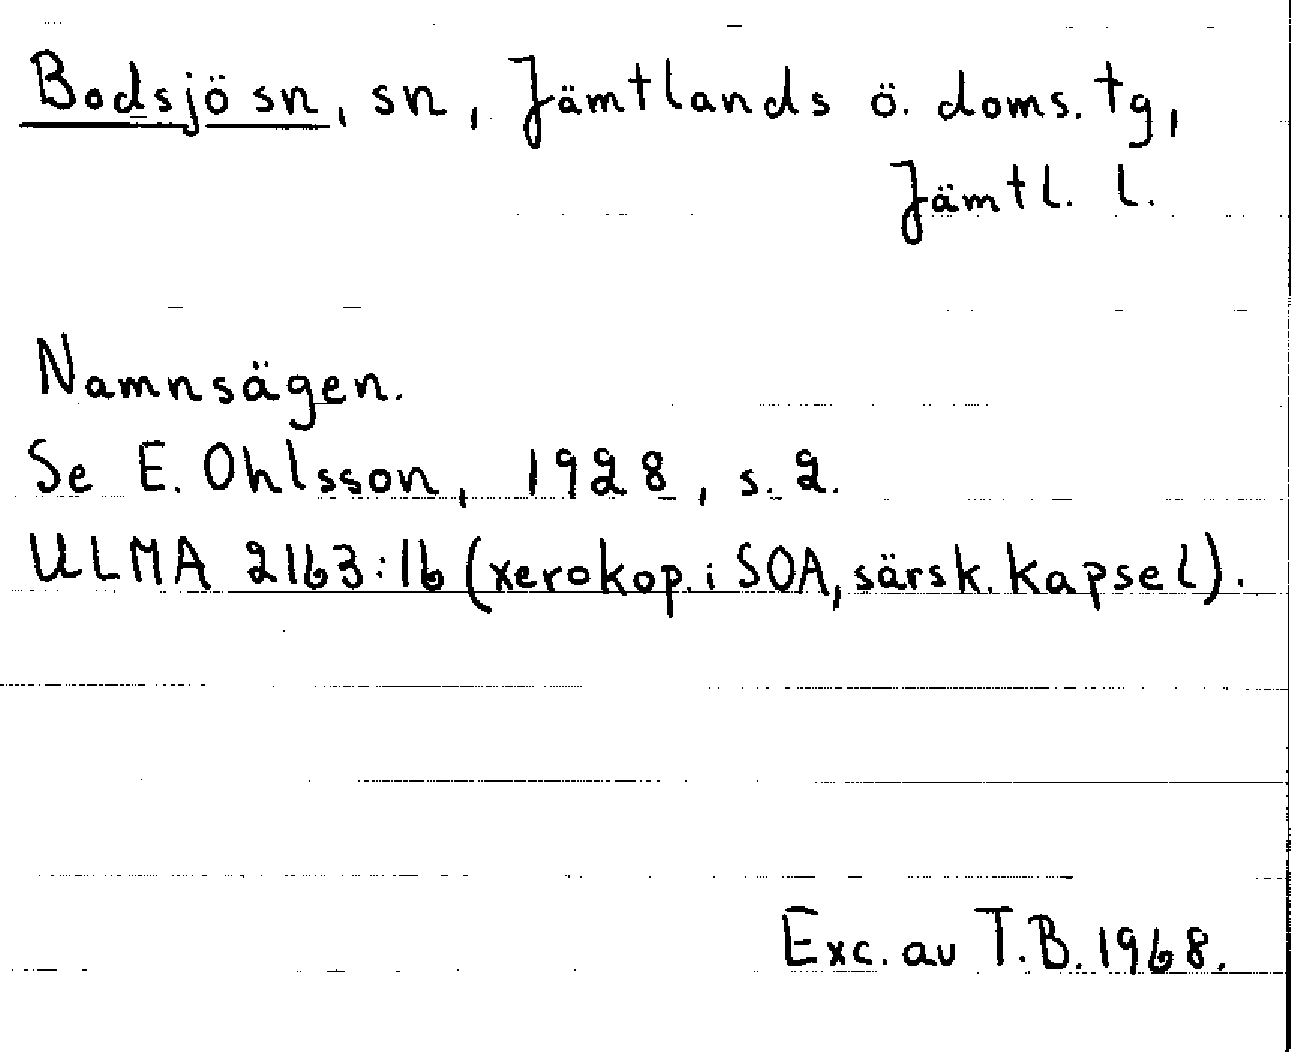 Bodsjö sn, sn, Jämtlands ö. doms. tg,
Jämtl. l.
Namnsägen.
Se E. Ohlsson, 1928, s. 2.
ULMA 2163:16 (xerokop. i SOA, särsk. kapsel).
Exc. av T.B. 1968.